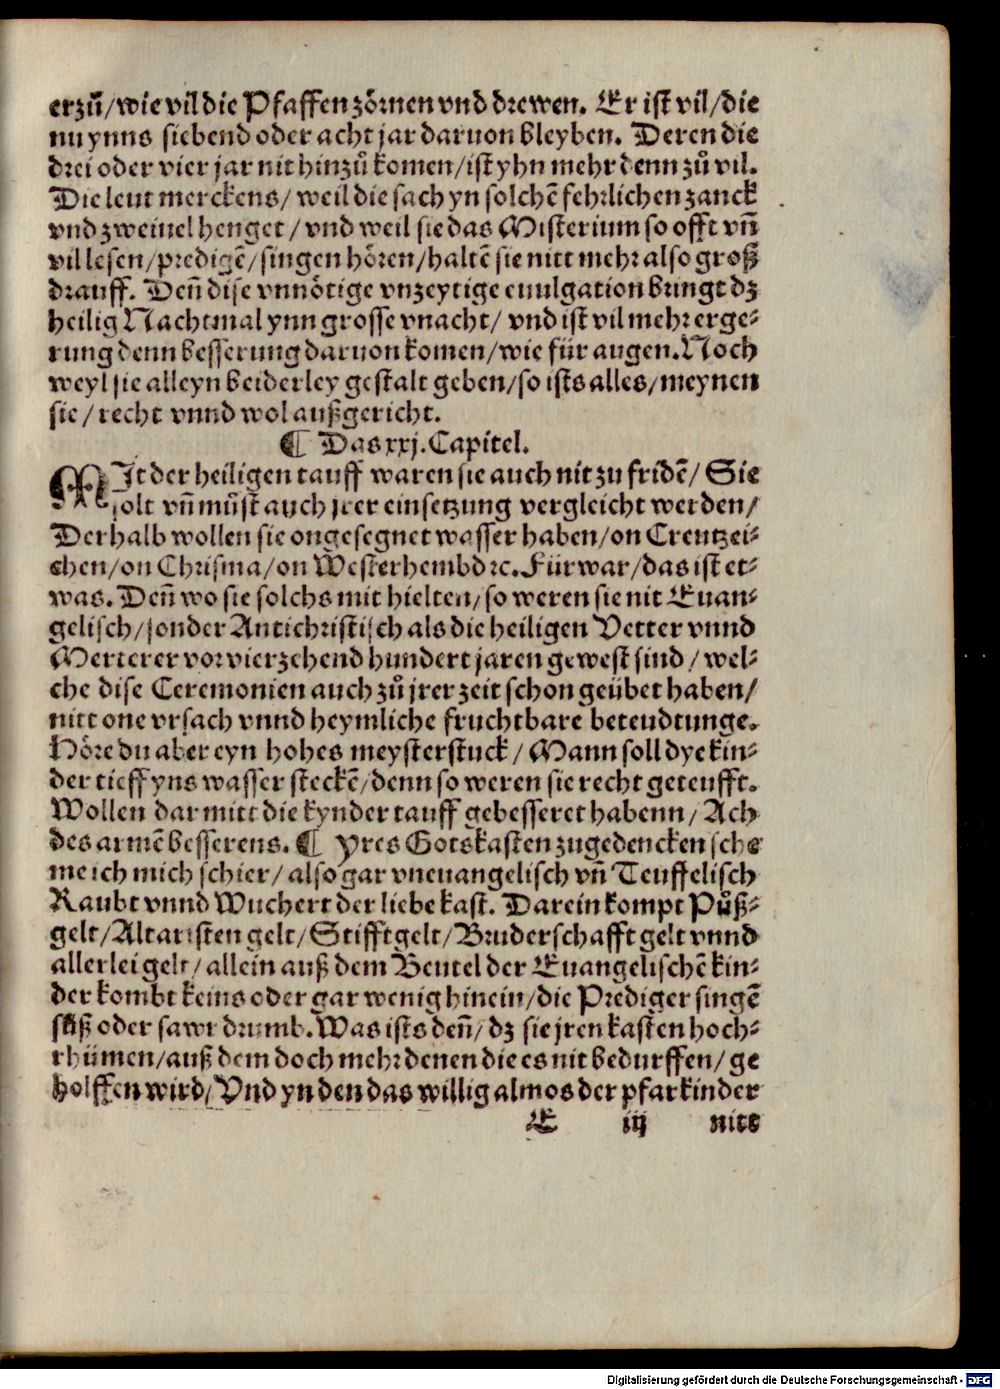 erzů/wie vil die Pfaffen zörnen vnd drewen. Er ist vil/die
nu ynns siebend oder acht jar daruon bleyben. Deren die
drei oder vier jar nit hinzů komen/ist yhn mehr denn zů vil.
Die leut merckens/ weil die sach yn solchē fehrlichen zanck
vnd zweiuel henget/ vnd weil sie das Misterium so offt vñ
vil lesen/predigē/singen hören/haltē sie nitt mehr also groß
drauff. Deñ dise vnnötige vnzeytige euulgation bringt dz
heilig Nachtmal ynn grosse vnacht/ vnd ist vil mehr erge-
rung denn besserung daruon komen/wie für augen. Noch
weyl sie alleyn beiderley gestalt geben/so ists alles/meynen
sie/ recht vnnd wol außgericht.
¶ Das xxj. Capitel.
MIt der heiligen tauff waren sie auch nit zu fridē/ Sie
solt vñ můst auch jrer einsetzung vergleicht werden/
Derhalb wollen sie ongesegnet wasser haben/on Creutzei-
chen/on Chrisma/on Westerhembd ꝛc. Fürwar/das ist et-
was. Deñ wo sie solchs mit hielten/so weren sie nit Euan-
gelisch/sonder Antichristisch als die heiligen Vetter vnnd
Merterer vor vierzehend hundert jaren gewest sind/ wel-
che dise Ceremonien auch zů jrer zeit schon geübet haben/
nitt one vrsach vnnd heymliche fruchtbare beteudtunge.
Höre du aber eyn hohes meysterstuck/ Mann soll dye kin-
der tieff yns wasser steckē/denn so weren sie recht geteufft.
Wollen dar mitt die kynder tauff gebesseret habenn/ Ach
des armē besserens. ¶ Yres Gotskasten zugedencken sche
me ich mich schier/ also gar vneuangelisch vñ Teuffelisch
Raubt vnnd Wuchert der liebe kast. Darein kompt Půß-
gelt/Altaristen gelt/Stifftgelt/Bruderschafft gelt vnnd
allerlei gelt/ allein auß dem Beutel der Euangelischē kin-
der kombt keins oder gar wenig hinein/die Prediger singē
süß oder sawr drumb. Was ists deñ/ dz sie jren kasten hoch-
rhümen/auß dem doch mehr denen die es nit bedurffen/ ge
holffen wird/ Vnd yn den das willig almos der pfarkinder
E iij nitt
Digitalisierung gefördert durch die Deutsche Forschungsgemeinschaft - DFG